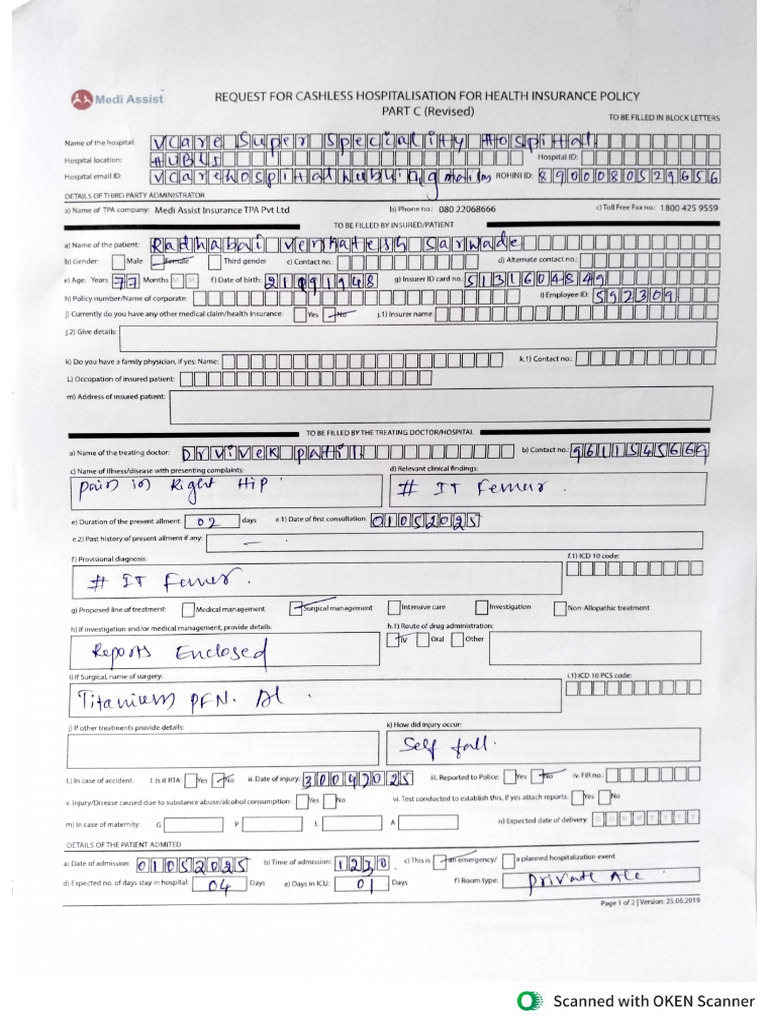 Medi Assist
REQUEST FOR CASHLESS HOSPITALISATION FOR HEALTH INSURANCE POLICY
PART C (Revised)
TO BE FILLED IN BLOCK LETTERS
Name of the hospital: Vcare Super Speciality Hospital
Hospital location: HUBLI Hospital ID:
Hospital email ID: vcarehospitalhubli@gmail ROHINI ID: 8900080529656
DETAILS OF THIRD PARTY ADMINISTRATOR
a) Name of TPA company: Medi Assist Insurance TPA Pvt Ltd b) Phone no.: 080 22068666 c) Toll Free Fax no.: 1800 425 9559
TO BE FILLED BY INSURED/PATIENT
a) Name of the patient: Radhabai Venkatesh Sarwade
b) Gender: Male Female Third gender c) Contact no.: d) Alternate contact no.:
e) Age: Years 77 Months M M f) Date of birth: 21091948 g) Insurer ID card no. 5131604849
h) Policy number/Name of corporate: i) Employee ID: 592309
j) Currently do you have any other medical claim/health insurance: Yes No j.1) Insurer name:
j.2) Give details:
k) Do you have a family physician, if yes: Name: k.1) Contact no.:
L) Occupation of insured patient:
m) Address of insured patient:
TO BE FILLED BY THE TREATING DOCTOR/HOSPITAL
a) Name of the treating doctor: Dr Vivek Patil b) Contact no.: 9611545669
c) Name of illness/disease with presenting complaints: d) Relevant clinical findings:
Pain in Right Hip # IT Femur.
e) Duration of the present ailment: 02 days e.1) Date of first consultation: 01052025
e.2) Past history of present ailment if any: —
f) Provisional diagnosis: f.1) ICD 10 code:
# IT Femur.
g) Proposed line of treatment: Medical management Surgical management Intensive care Investigation Non-Allopathic treatment
h) If investigation and/or medical management, provide details: h.1) Route of drug administration:
Reports Enclosed IV Oral Other
i) If Surgical, name of surgery: i.1) ICD 10 PCS code:
Titanium PFN.
j) If other treatments provide details: k) How did injury occur:
Self fall.
l.) In case of accident: i. Is it RTA: Yes No ii. Date of injury: 30042025 iii. Reported to Police: Yes No iv. FIR no.:
v. Injury/Disease caused due to substance abuse/alcohol consumption: Yes No vi. Test conducted to establish this, if yes attach reports: Yes No
m) In case of maternity: G P L A n) Expected date of delivery: D D M M Y Y Y Y
DETAILS OF THE PATIENT ADMITED
a) Date of admission: 01052025 b) Time of admission: 1230 c) This is an emergency/ a planned hospitalization event
d) Expected no. of days stay in hospital: 04 Days e) Days in ICU: 01 Days f) Room type: Private A/c.
Page 1 of 2 | Version: 25.06.2019
Scanned with OKEN Scanner